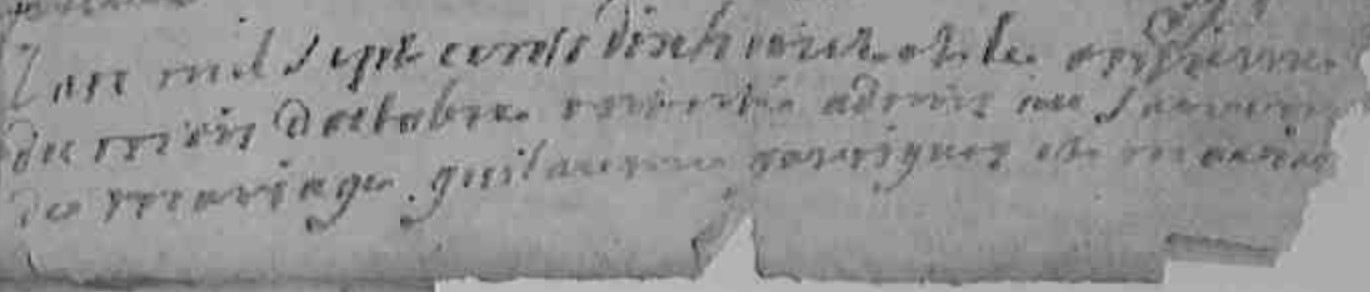 Lan mil sept cents dixhuict et le onzieme
du mois doctobre ont estés admis au sacremen
de mariage guillaume garrigues et marie